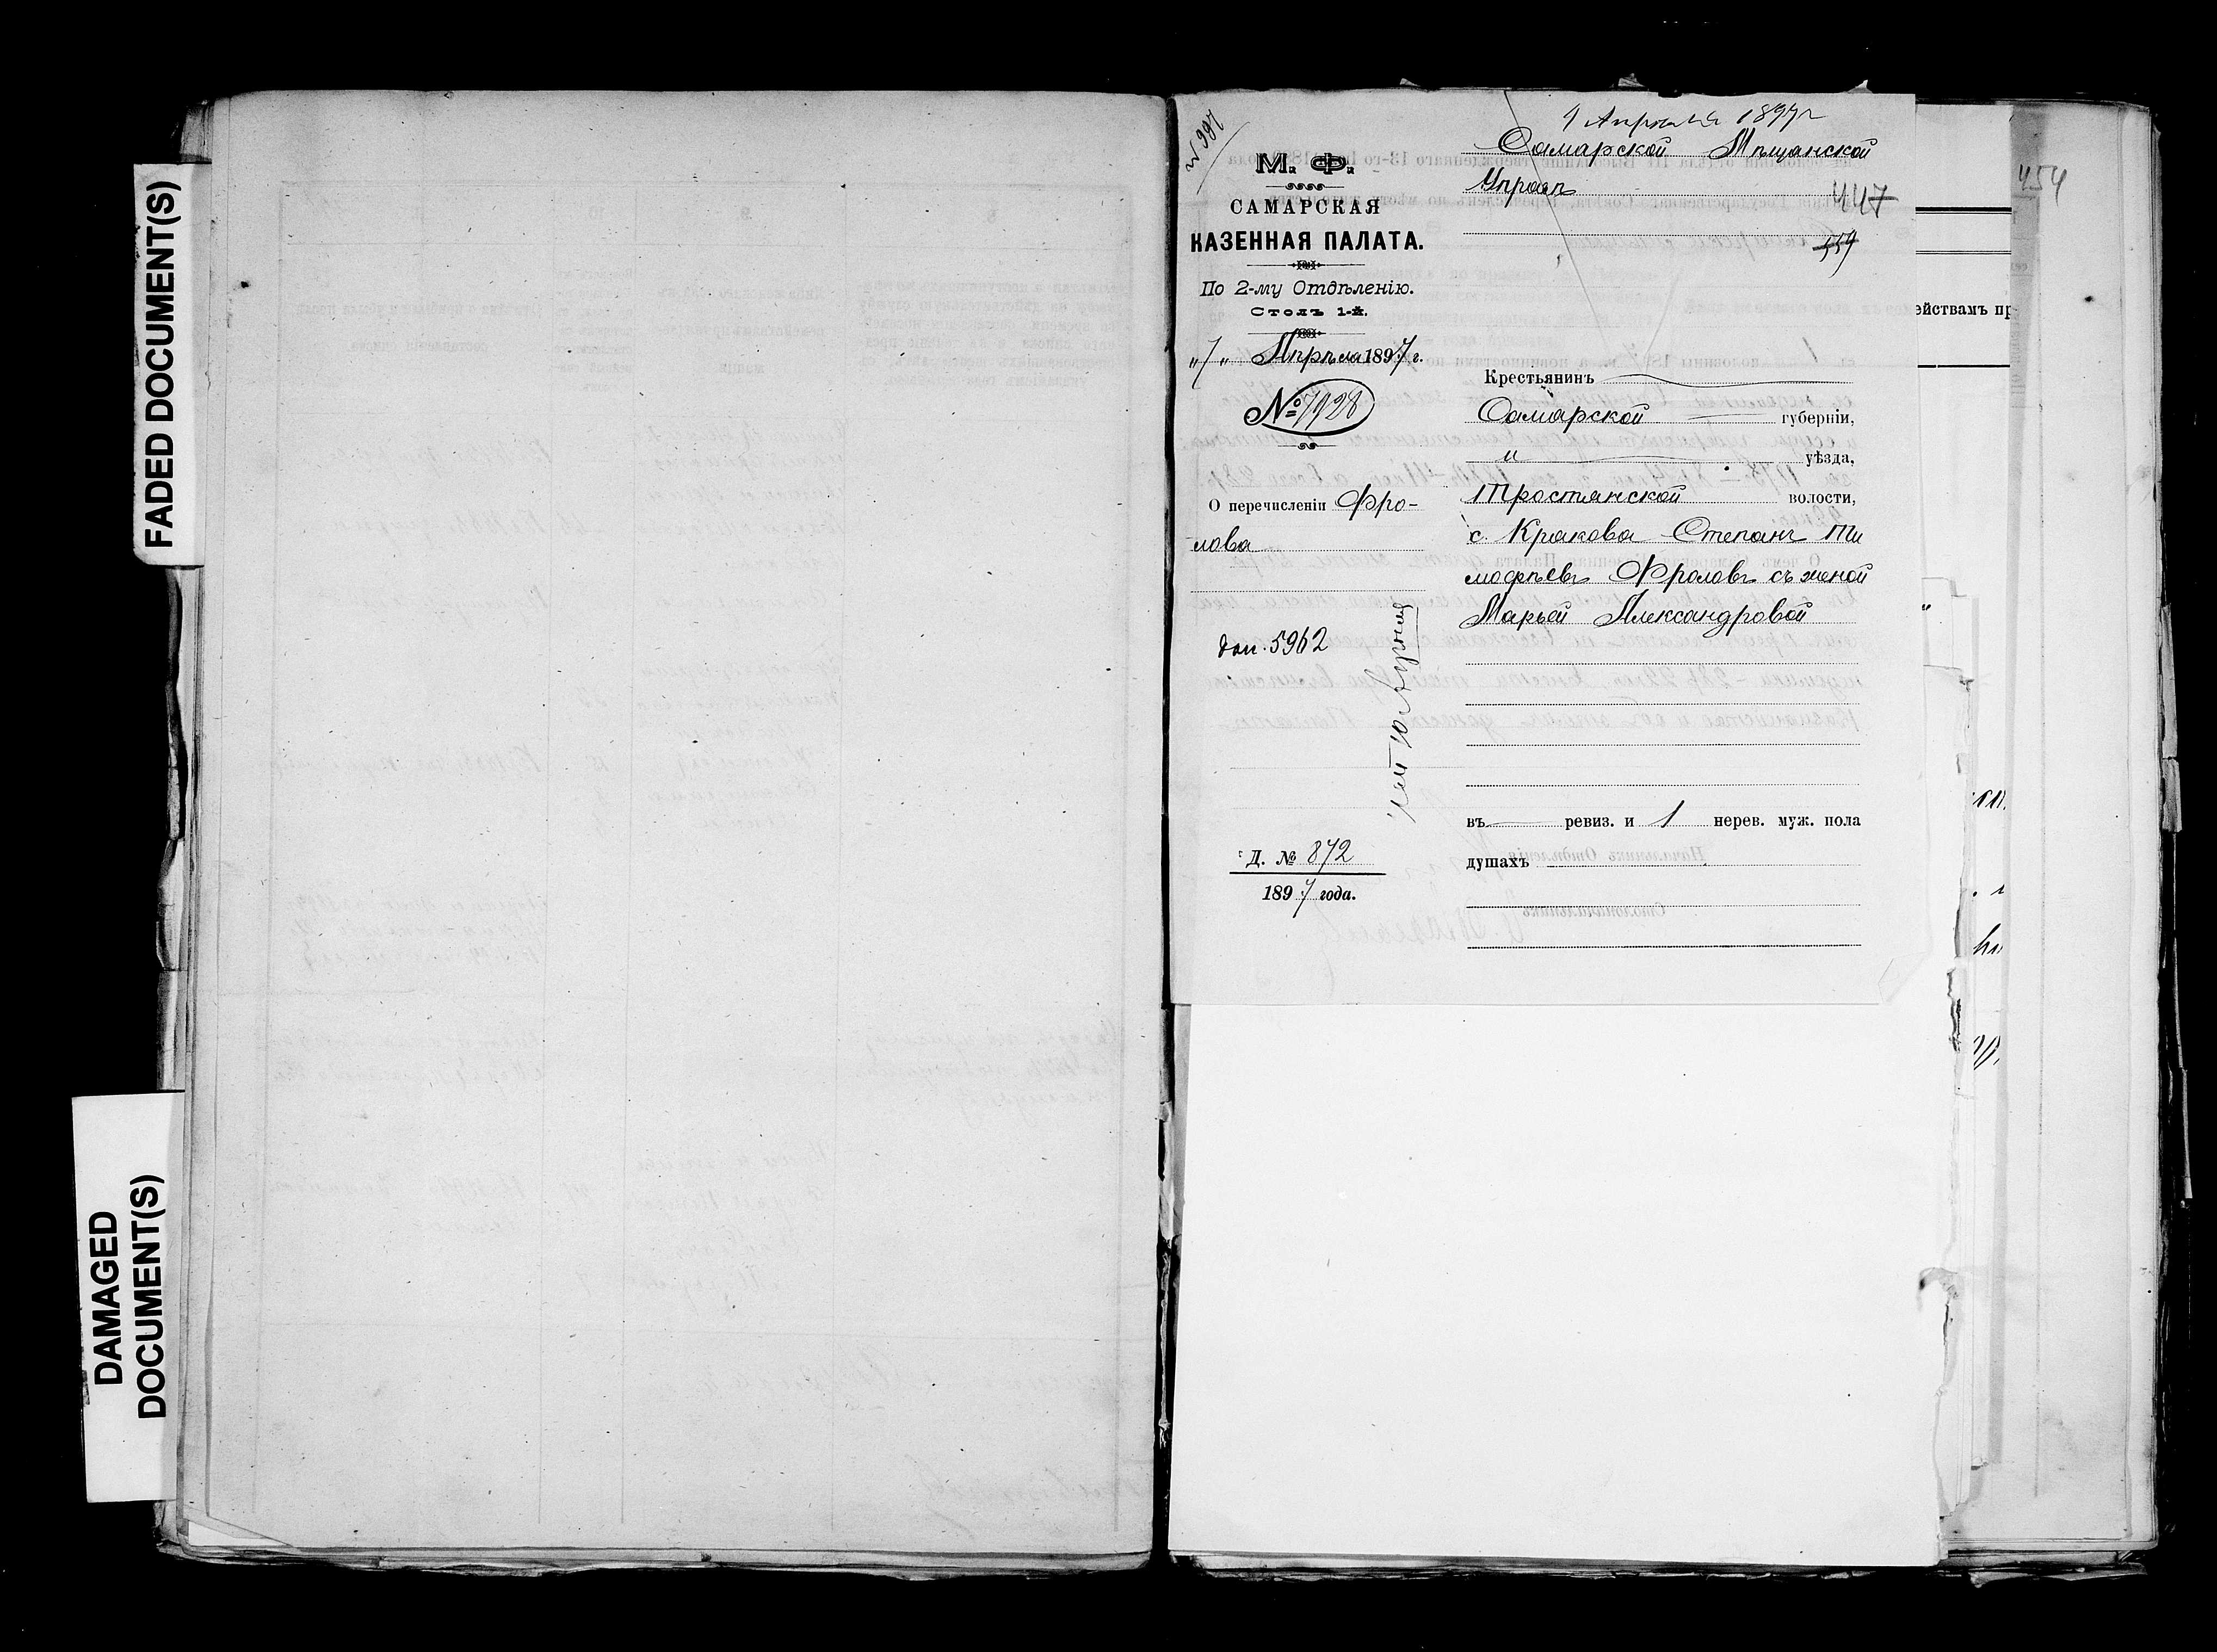 FADED DOCUMENT(S)
DAMAGED
DOCUMENT(S)
М. Ф.
САМАРСКАЯ
КАЗЕННАЯ ПАЛАТА.
По 2-му Отдѣленію.
Столъ 1-й.
„7„ Апрѣля 1897 г.
№ 7928
О перечисленіи Фро-
лова
5962
Д. № 872
1897 года.
Апрѣля 1897 г
Самарской Мѣщанской
Управѣ
447
559
Крестьянинъ
Самарской губерніи,
и уѣзда,
Тростянской волости,
с. Кракова Степанъ Ти
мофѣевъ Фроловъ съ женой
Марьей Александровой
въ ревиз. и 1 нерев. муж. пола
душахъ
454
ействамъ пр